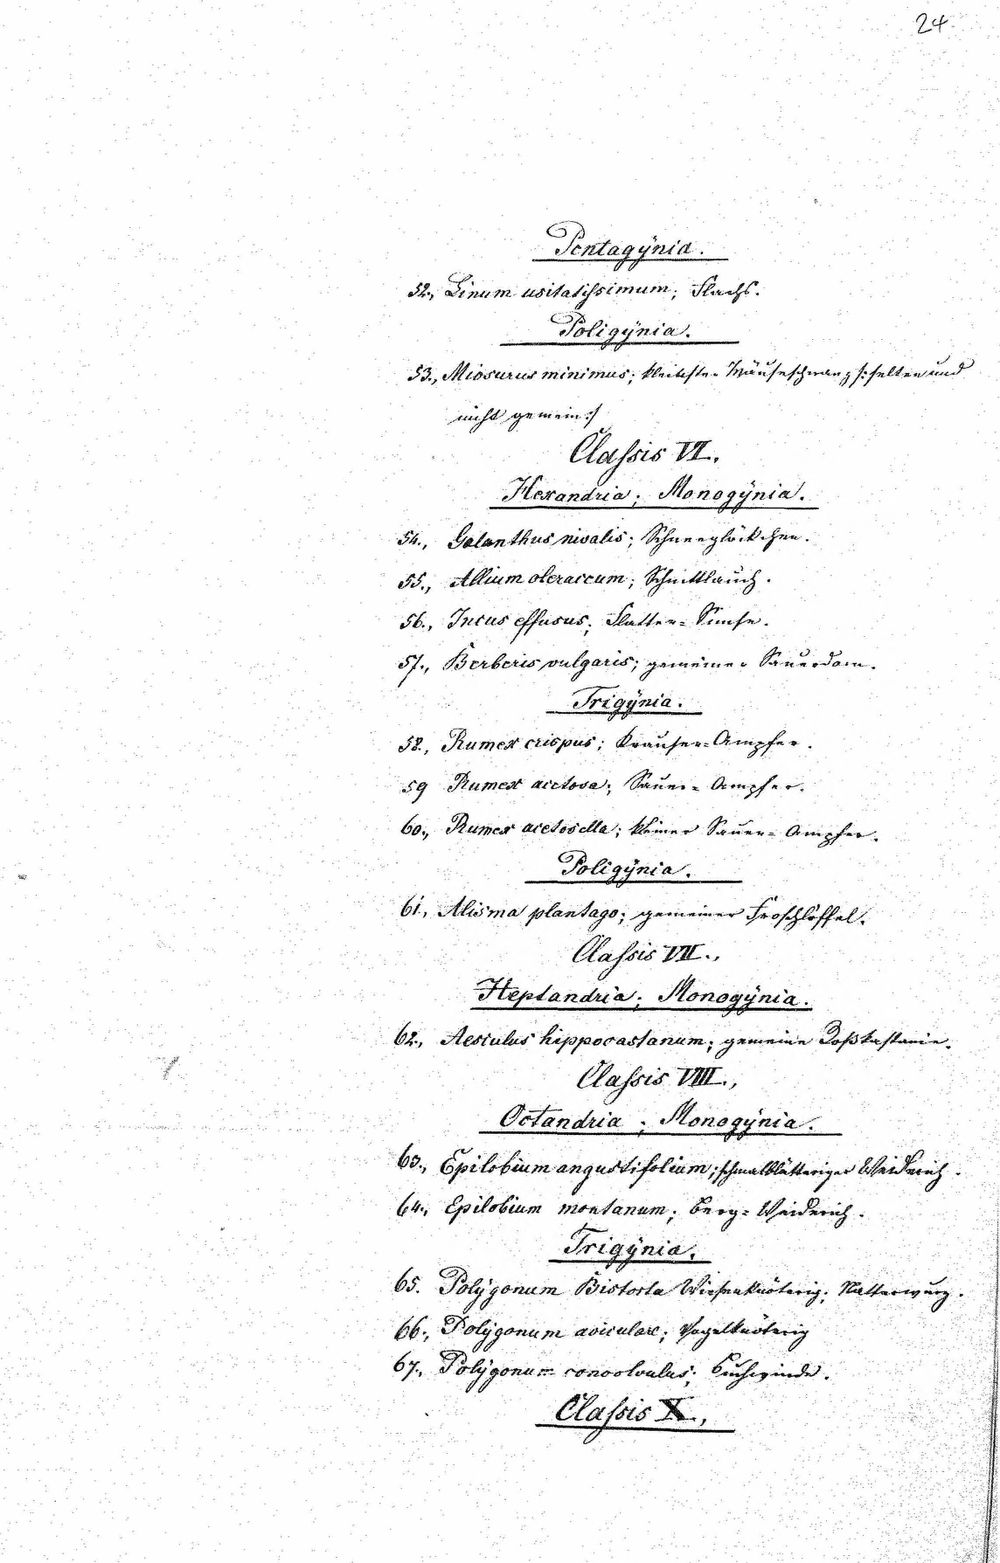 24
Pentagÿnia.
52., Linum usitatissimum; Flachs.
Poligÿnia.
53., Miosurus minimus; kleinster Mäuseschwanz /:selten und
nicht gemein:/
Classis VI.
Hexandria; Monogÿnia.
54., Galanthus nivalis; Schneeglöckchen.
55., Allium oleraceum; Schnittlauch.
56., Incus effusus; Flatter-Simse.
57., Berberis vulgaris; gemeiner Sauerdorn.
Trigÿnia.
58., Rumex crispus; Krauser-Ampfer.
59 Rumex acetosa; Sauer-Ampfer.
60., Rumex acetosella; kleiner Sauer-Ampfer.
Poligÿnia.
61., Alisma plantago; gemeiner Froschlöffel.
Classis VII.,
Heptandria; Monogÿnia.
62., Aesculus hippocastanum; gemeine Roßkastanie.
Classis VIII.,
Octandria; Monogÿnia.
63., Epilobium angustifolium; schmalblätteriger Weidrich.
64., Epilobium montanum; Berg-Weiderich.
Trigÿnia.
65. Polÿgonum Bistorta Wiesenknöterig; Natterwurz.
66., Polÿgonum aviculare; Vogelknöterig
67., Polÿgonum convolvulus; Buchwinde.
Classis X.,